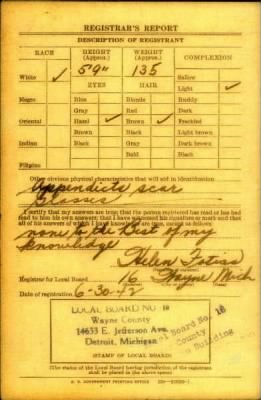 REGISTRAR'S REPORT
DESCRIPTION OF REGISTRANT
RACE HEIGHT (Approx.) WEIGHT (Approx.) COMPLEXION
White ✓ 5'9" 135 Sallow
EYES HAIR Light ✓
Negro Blue Blonde Ruddy
Gray Red Dark
Oriental Hazel ✓ Brown ✓ Freckled
Brown Black Light brown
Indian Black Gray Dark brown
Bald Black
Filipino
Other obvious physical characteristics that will aid in identification
Appendicts scar
Glasses
I certify that my answers are true; that the person registered has read or has had
read to him his own answers; that I have witnessed his signature or mark and that
all of his answers of which I have knowledge are true, except as follows:
none to the best of my
knowledge
Helen
Registrar for Local Board 16 Wayne Mich
Date of registration 6-30-42
LOCAL BOARD NO 16
Wayne County
14633 E. Jefferson Ave.
Detroit, Michigan
Local Board No. 16
County
Building
(STAMP OF LOCAL BOARD)
(The stamp of the Local Board having jurisdiction of the registrant
shall be placed in the above space)
U. S. GOVERNMENT PRINTING OFFICE